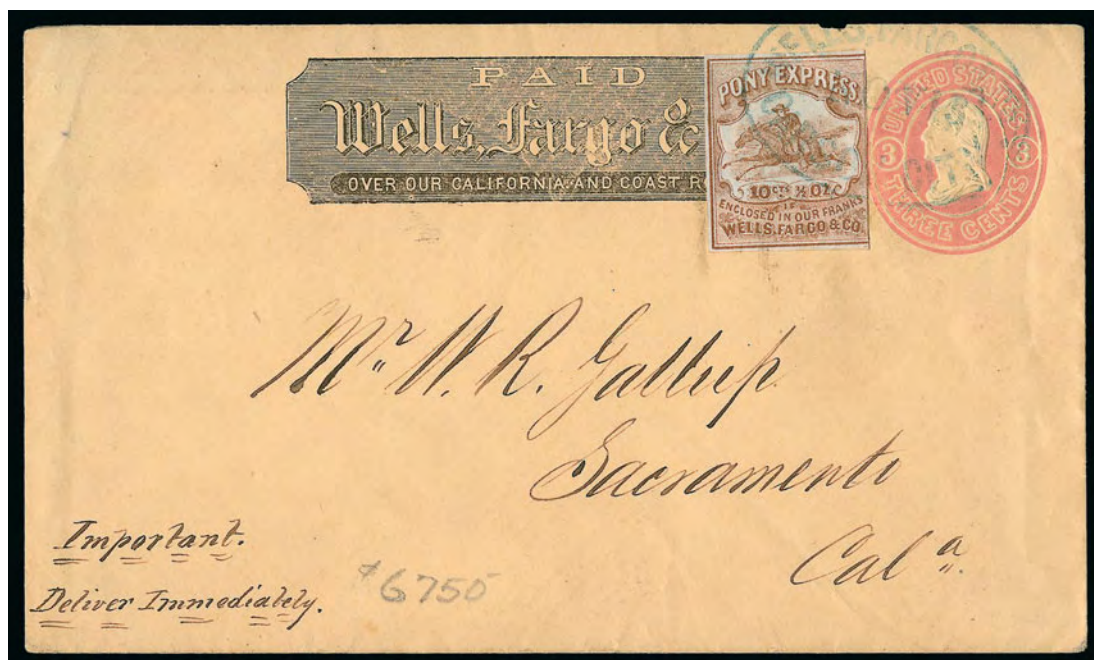 PAID
Wells, Fargo &
OVER OUR CALIFORNIA AND COAST R
PONY EXPRESS.
10 CTS ½ OZ
IF
ENCLOSED IN OUR FRANKS
WELLS, FARGO & CO.
WELLS, FARGO
UNITED STATES
3 3
THREE CENTS
Mr. W. R. Gallup
Sacramento
Cal a.
Important.
Deliver Immediately.
$6750